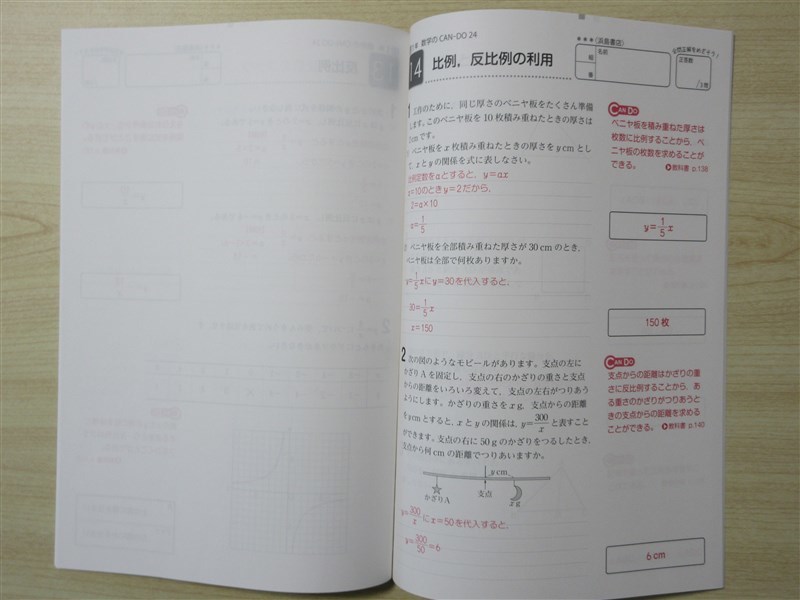 数学のCAN-DO 24
14 比例，反比例の利用
★★★〈浜島書店〉
組
番
名前
全問正解をめざそう！
正答数
/3問
1 工作のために，同じ厚さのベニヤ板をたくさん準備
します。このベニヤ板を10枚積み重ねたときの厚さは
2cmです。
ベニヤ板をx枚積み重ねたときの厚さをy cmとし
て，xとyの関係を式に表しなさい。
比例定数をaとすると，y=ax
x=10のときy=2だから，
2=a×10
=1/5
ベニヤ板を全部積み重ねた厚さが30 cmのとき，
ベニヤ板は全部で何枚ありますか。
y=1/5xにy=30を代入すると，
30=1/5x
x=150
CAN DO
ベニヤ板を積み重ねた厚さは
枚数に比例することから，ベ
ニヤ板の枚数を求めることが
できる。 教科書 p.138
y=1/5x
150枚
2 次の図のようなモビールがあります。支点の左に
かざりAを固定し，支点の右のかざりの重さと支点
からの距離をいろいろ変えて，支点の左右がつりあう
ようにします。かざりの重さをx g，支点からの距離
をy cmとすると，xとyの関係は，y=300/xと表すこと
ができます。支点の右に50 gのかざりをつるしたとき，
支点から何cmの距離でつりあいますか。
y cm
かざりA
支点
x g
y=300/xにx=50を代入すると，
y=300/50=6
CAN DO
支点からの距離はかざりの重
さに反比例することから，あ
る重さのかざりがつりあうと
きの支点からの距離を求める
ことができる。 教科書 p.140
6 cm